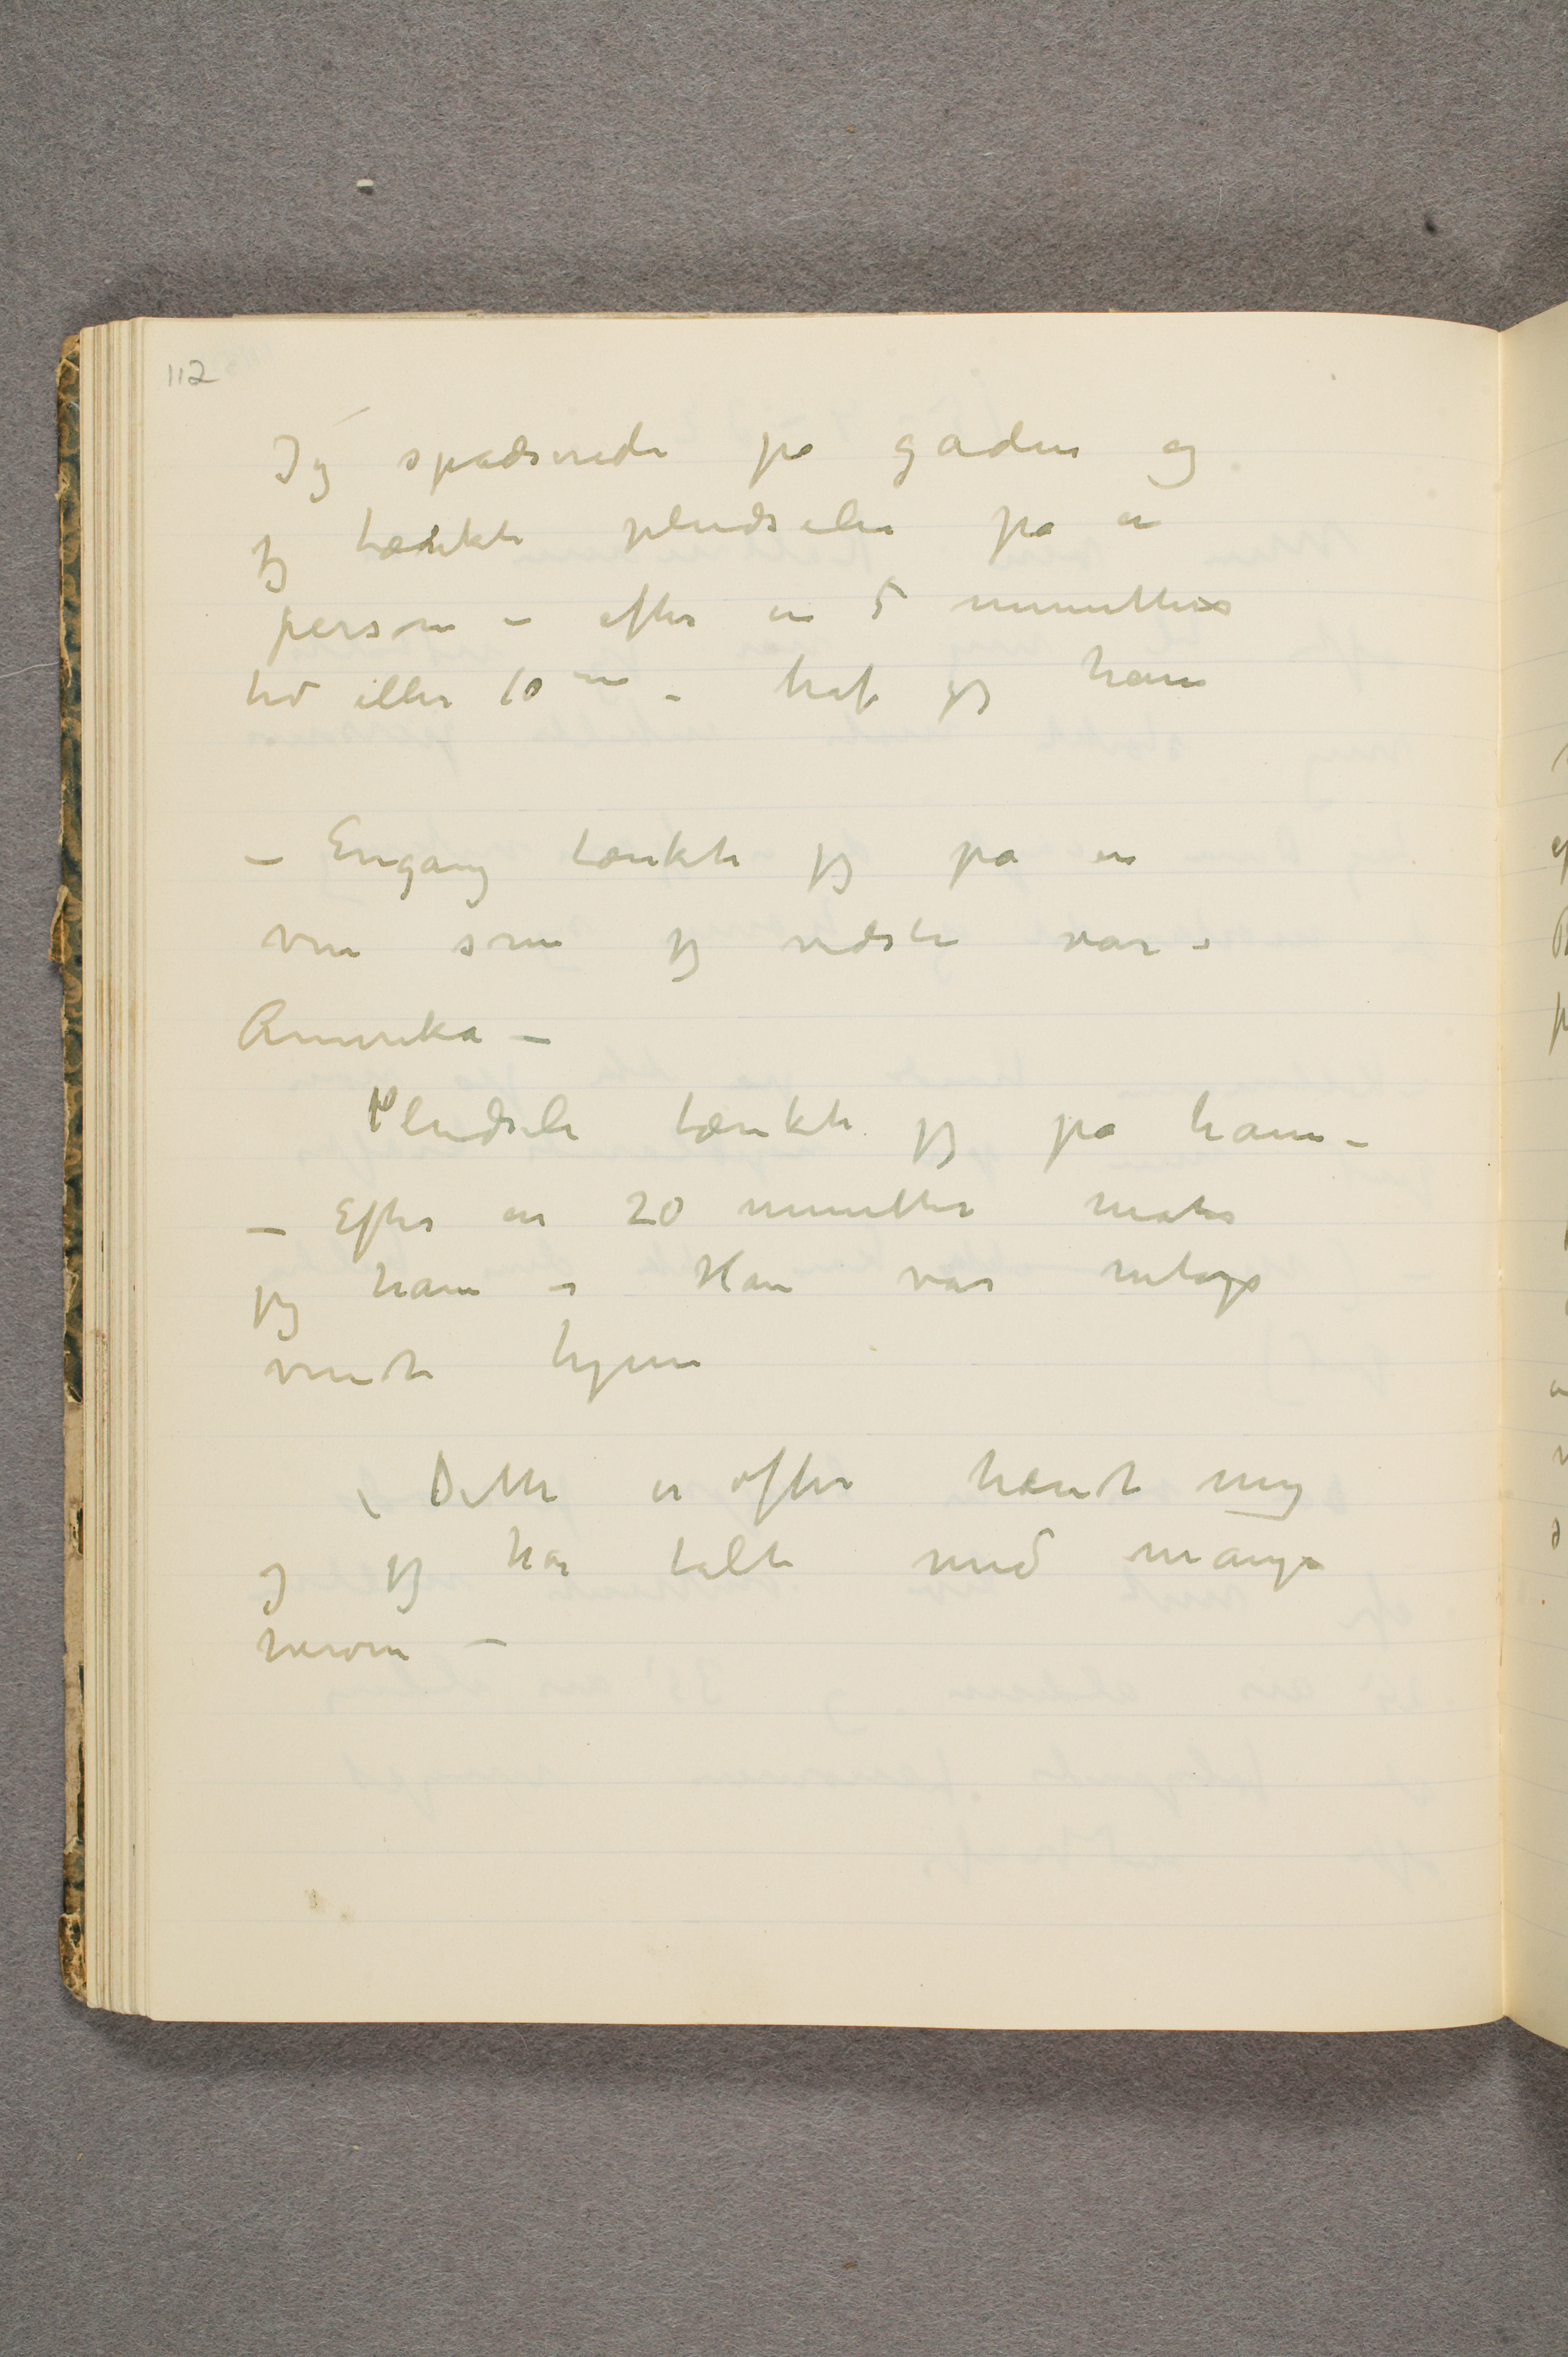 112
Jeg spadserede på gaden og
jeg tænkte pludselig på en
person – efter en 5 minutters
tid eller 10 – traf jeg ham
– Engang tænkte jeg på en
ven som jeg vidste var i
Amerika –
Pludselig tænkte jeg på ham –
– Efter en 20 minutter møtte
jeg ham – Han var netop
vendt hjem
Dette er ofte hændt mig
og jeg har talt med mange
herom –